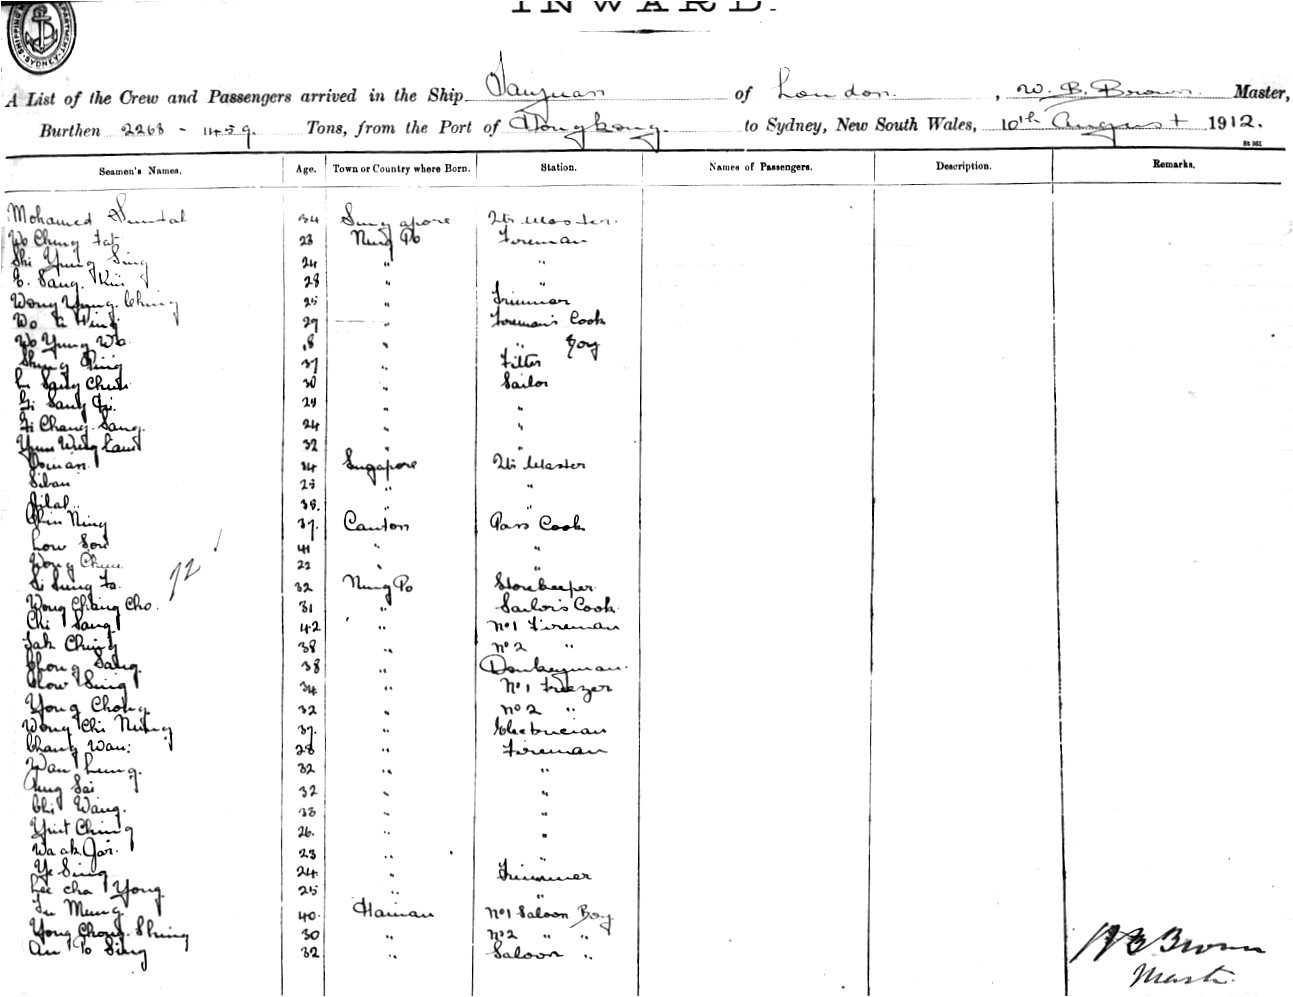 INWARD.
SHIPPING DEPARTMENT. SYDNEY.
A List of the Crew and Passengers arrived in the Ship Taiyuan of London, W. B. Brown Master,
Burthen 2268 - 1459 Tons, from the Port of Hongkong to Sydney, New South Wales, 10th August 1912.
Seamen's Names. Age. Town or Country where Born. Station. Names of Passengers. Description. Remarks.
Mohamed 34 Singapore Qtr Master.
Wo Ching Fat 23 Ning Po Fireman
Shi Yung Sing 24 " "
Sang Kin 28 " "
Wong Yung Ching 25 " Trimmer
Wo Ki Ning 29 " Foreman's Cook
Wo Yung Wo 18 " " Boy
Shung King 37 " Fitter
Sang Chun 30 " Sailor
Sang 29 " "
Chang Sang 24 " "
Yuen Wing 32 " "
Osman 34 Singapore Qtr Master
25 " "
38. " "
Chin Ning 37 Canton Pass Cook
Low Sow 41 " "
Wong Chun 22 " "
Li Sung Fa. 32 Ning Po Storekeeper
72
Wong Chang Cho. 31 " Sailor's Cook
Chi Sang 42 " No 1 Fireman
Fak Ching 38 " No 2 "
Chong Sang. 38 " Donkeyman.
Chow Sing 34 " No 1 Freezer
Yong Chong. 32 " No 2 "
Wong Chi Nung 37. " Electrician
Chang Wan. 28 " Fireman
Wan Lung. 32 " "
Sai 32 " "
Chi Wang. 33 " "
Ching 26. " "
Wa ak Joi. 23 " "
Ye Sing 24 " Trimmer
Lee cha Yong 25 " "
Mung 40. Hainan No 1 Saloon Boy
Yong Chong Shing 30 " No 2 " "
au Po Sing 32 " Saloon "
W B Brown
Master.